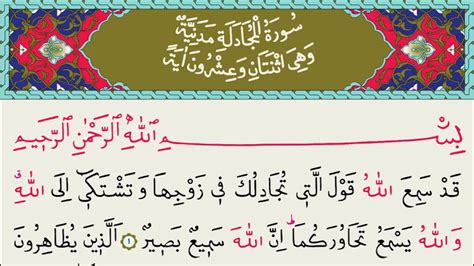 سُورَةُ الْمُجَادَلَةِ مَدَنِيَّةٌ
وَهِيَ اثْنَتَانِ وَعِشْرُونَ اٰيَةً
بِسْمِ اللّٰهِ الرَّحْمٰنِ الرَّحِيمِ
قَدْ سَمِعَ اللّٰهُ قَوْلَ الَّتٖي تُجَادِلُكَ فٖي زَوْجِهَا وَتَشْتَكٖٓي اِلَى اللّٰهِۗ
وَاللّٰهُ يَسْمَعُ تَحَاوُرَكُمَاۜ اِنَّ اللّٰهَ سَمٖيعٌ بَصٖيرٌ ﴿١﴾ اَلَّذٖينَ يُظَاهِرُونَ